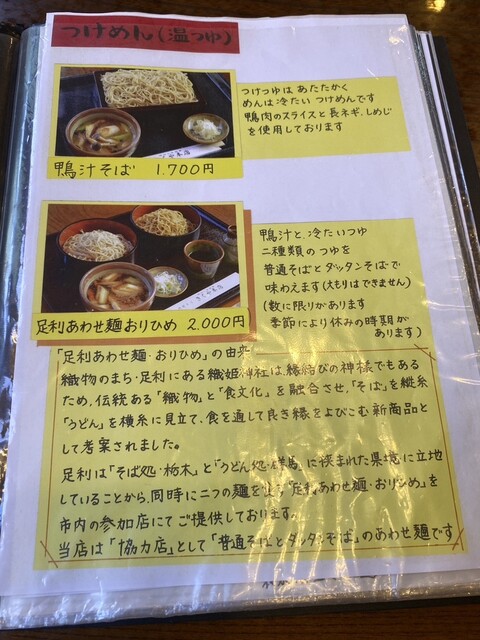 つけめん(温つゆ)
つけつゆは あたたかく
めんは冷たい つけめんです
鴨肉のスライスと長ネギ、しめじ
を使用しております
鴨汁そば 1.700円
鴨汁と、冷たいつゆ
二種類のつゆを
普通そばとダッタンそばで
味わえます(大もりはできません)
(数に限りがあります
季節により休みの時期が
あります)
足利あわせ麺おりひめ 2.000円
「足利あわせ麺・おりひめ」の由来
織物のまち・足利にある織姫神社は、縁結びの神様でもある
ため、伝統ある「織物」と「食文化」を融合させ、「そば」を縦糸
「うどん」を横糸に見立て、食を通して良き縁をよびこむ新商品と
して考案されました。
足利は「そば処・栃木」と「うどん処・群馬」に挟まれた県境に立地
していることから、同時に二つの麺を 「足利あわせ麺・おりひめ」を
市内の参加店にてご提供しております。
当店は「協力店」として「普通そばとダッタンそば」のあわせ麺です